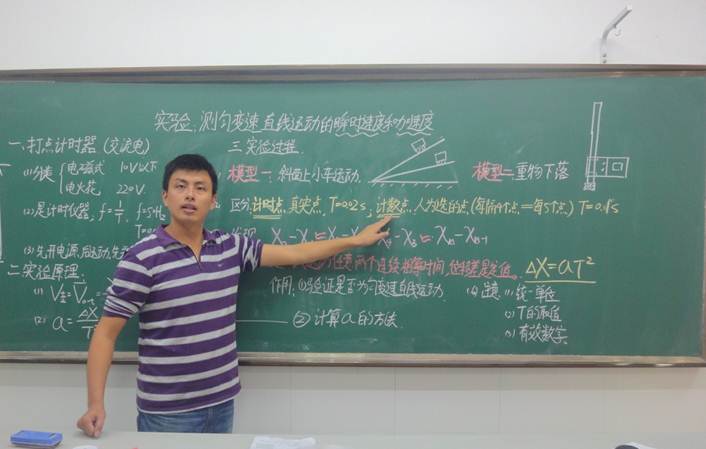 实验:测匀变速直线运动的瞬时速度和加速度
一、打点计时器(交流电)
(1)分类 { 电磁式 10V以下
电火花 220V
(2)是计时仪器, f=1/T, f=50Hz
T=0.0
(3)先开电源,后运动,先关
二、实验原理
(1) V
(2) a=ΔX/T
三、实验过程.
模型一:斜面上小车运动.
模型二:重物下落
区分:计时点,真实点,T=0.02s;计数点,人为选的点,(每隔4个点=每5个点)T=0.1s
X₂-X₁=X₃-X -X₃=Xₙ-Xₙ₋₁
任意两个连续相等时间,位移差是定值. ΔX=aT²
作用:①验证是否为匀变速直线运动.
② 计算a的方法.
(4)注意 (1)统一单位
(2)T的取值
(3)有效数字